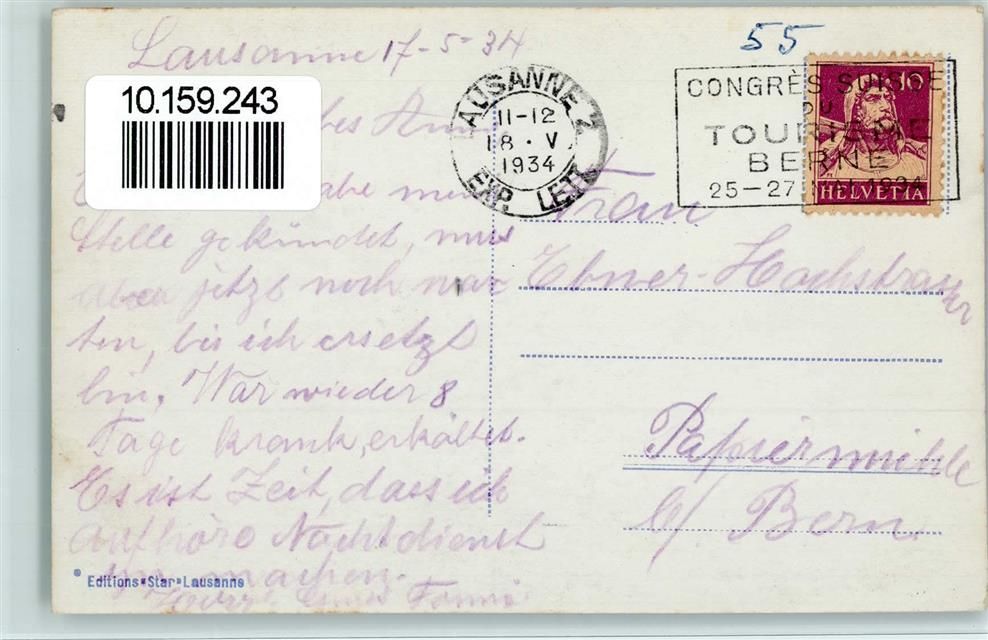 Lausanne 17-5-34
55
10.159.243
LAUSANNE 2
11-12
18. V
1934
EXP. LETT.
CONGRÈS SUISSE
DU
TOURISME
BERNE
25-27 1934
10
HELVETIA
Stelle gekündet, mus
aber jetzt noch war
ten, bis ich ersetzt
bin. War wieder 8
Tage krank, erkältet.
Es ist Zeit, dass ich
aufhöre Nachtdienst
zu machen.
Fanni
Frau
Ebner-Hochstrasser
Papiermühle
b/ Bern
Editions "Star" Lausanne